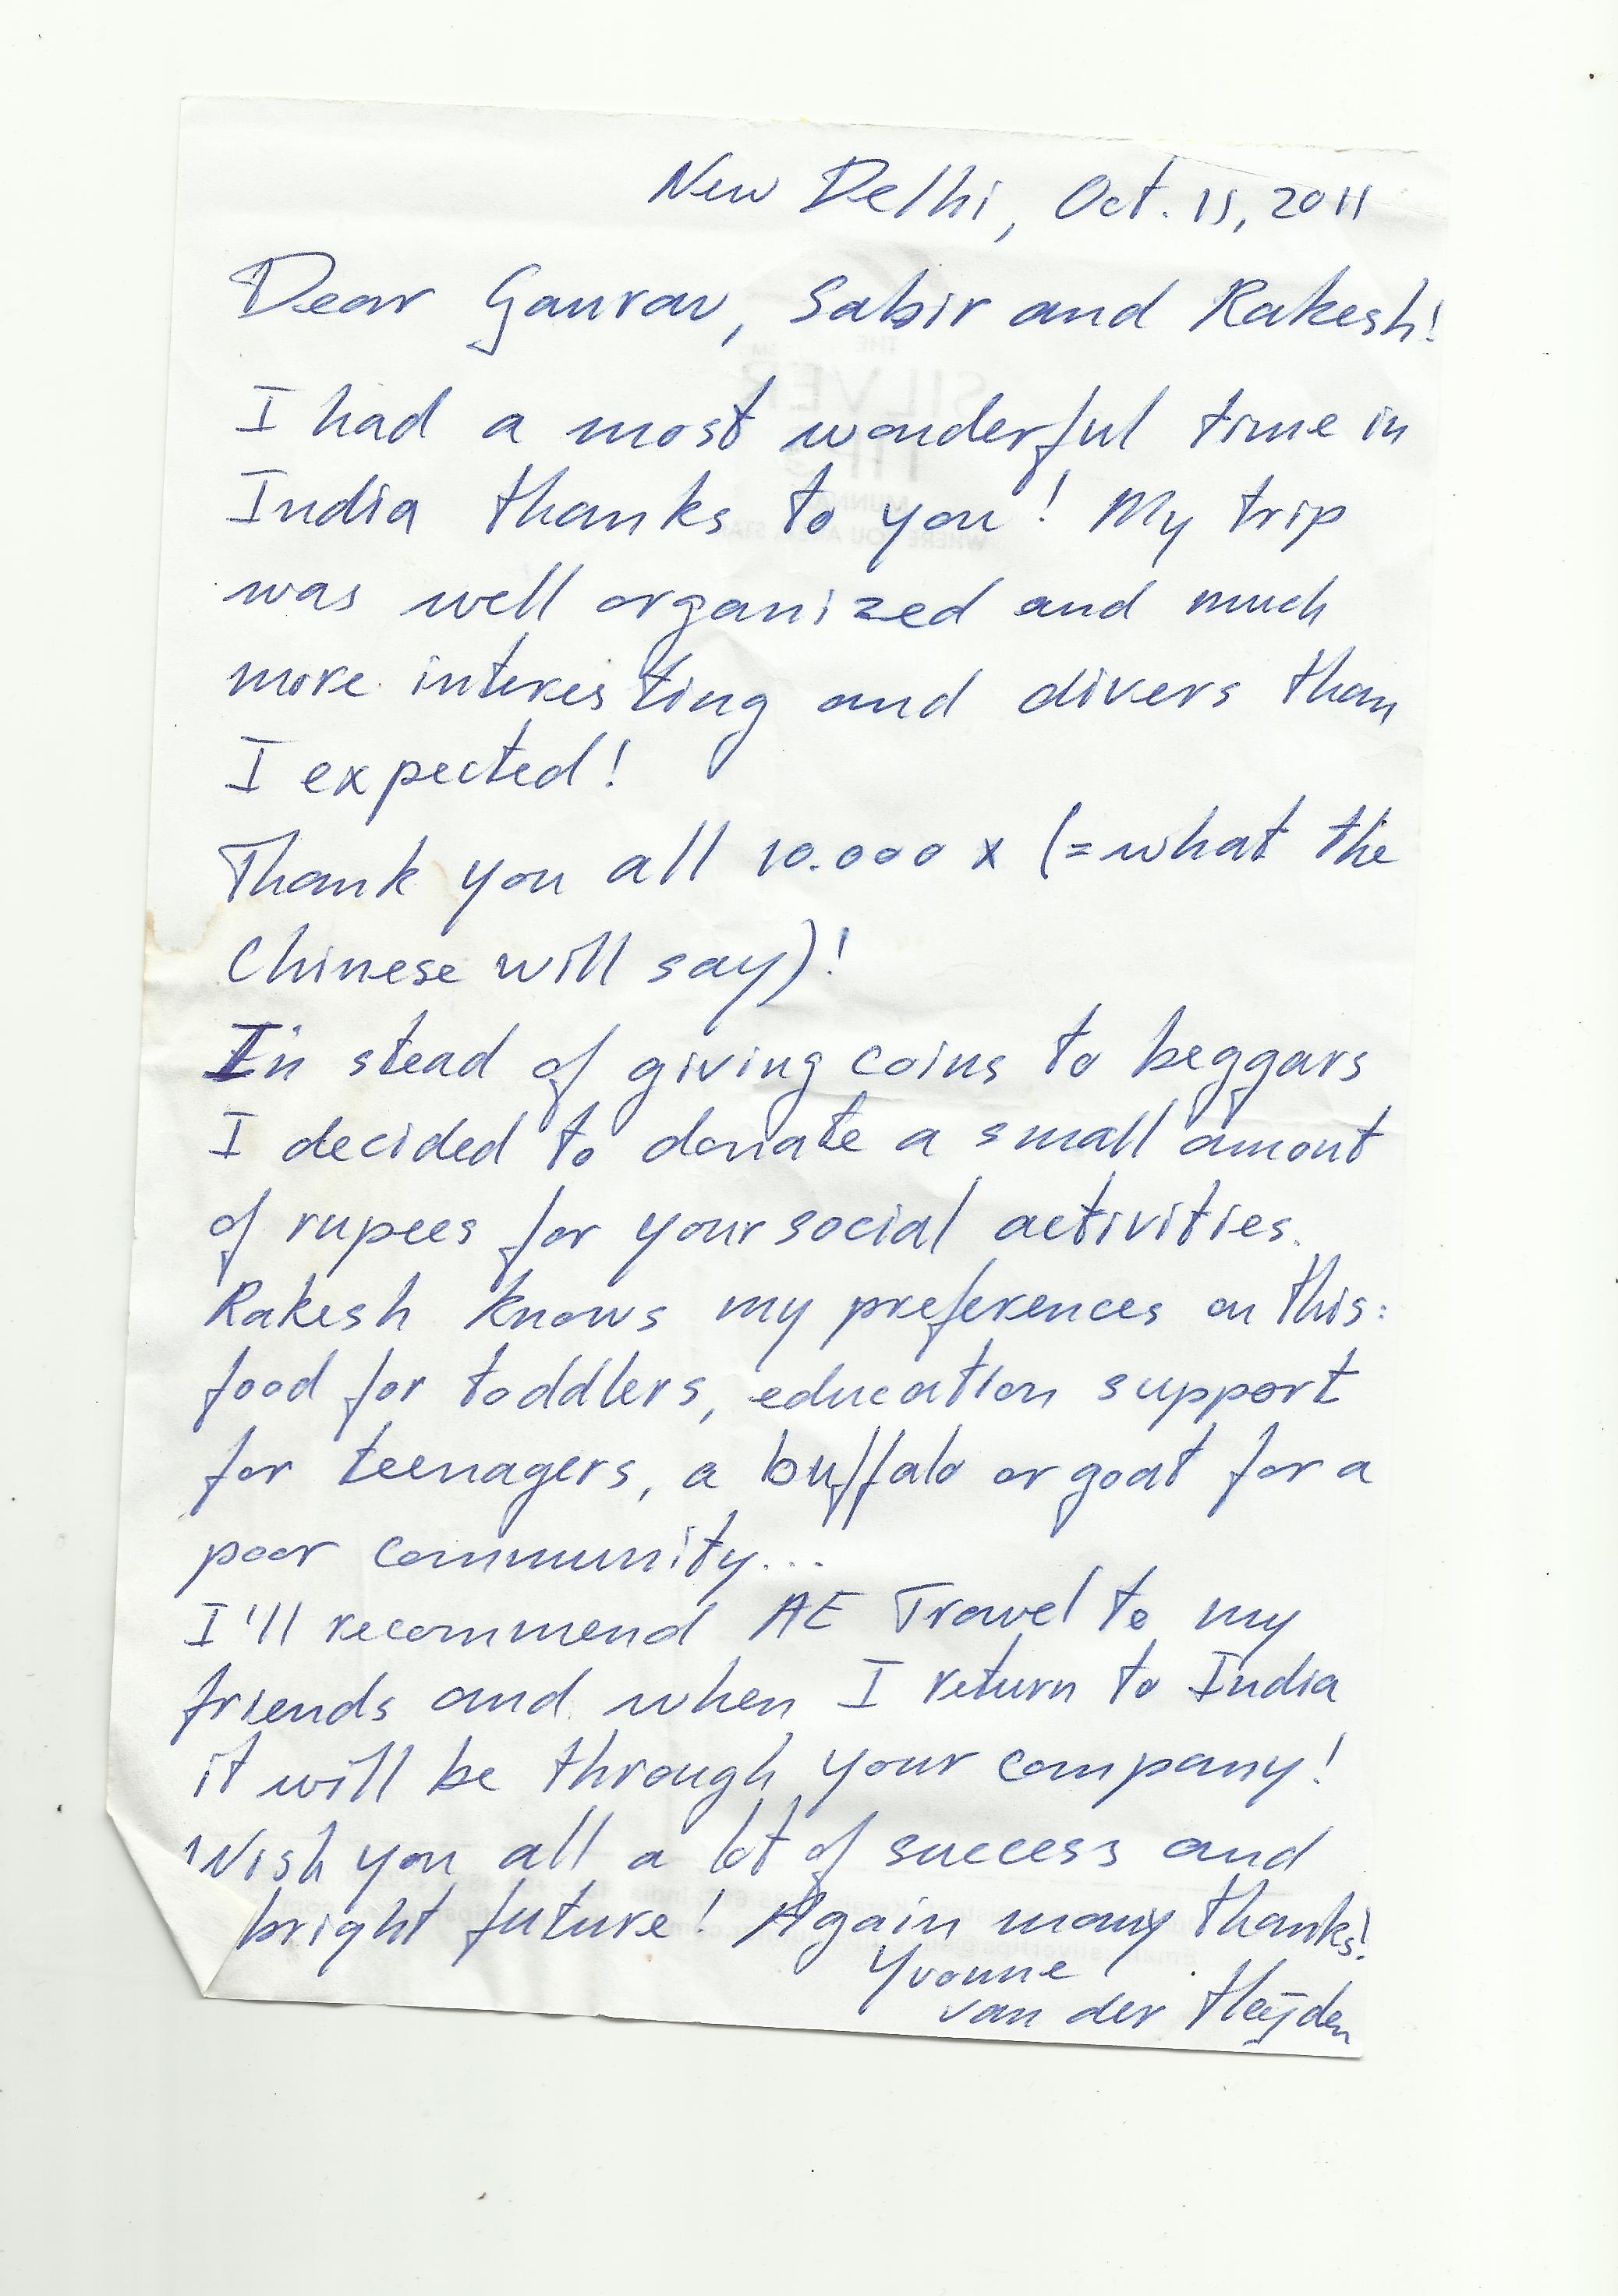 New Delhi, Oct. 15, 2011
Dear Gaurav, Sabir and Rakesh!
I had a most wonderful time in
India thanks to you! My trip
was well organized and much
more interesting and divers than
I expected!
Thank you all 10.000 x (=what the
Chinese will say)!
In stead of giving coins to beggars
I decided to donate a small amont
of rupees for your social activities.
Rakesh knows my preferences on this:
food for toddlers, education support
for teenagers, a buffalo or goat for a
poor community...
I'll recommend AE Travel to my
friends and when I return to India
it will be through your company!
Wish you all a lot of success and
bright future! Again many thanks!
Yvonne
van der Heijden